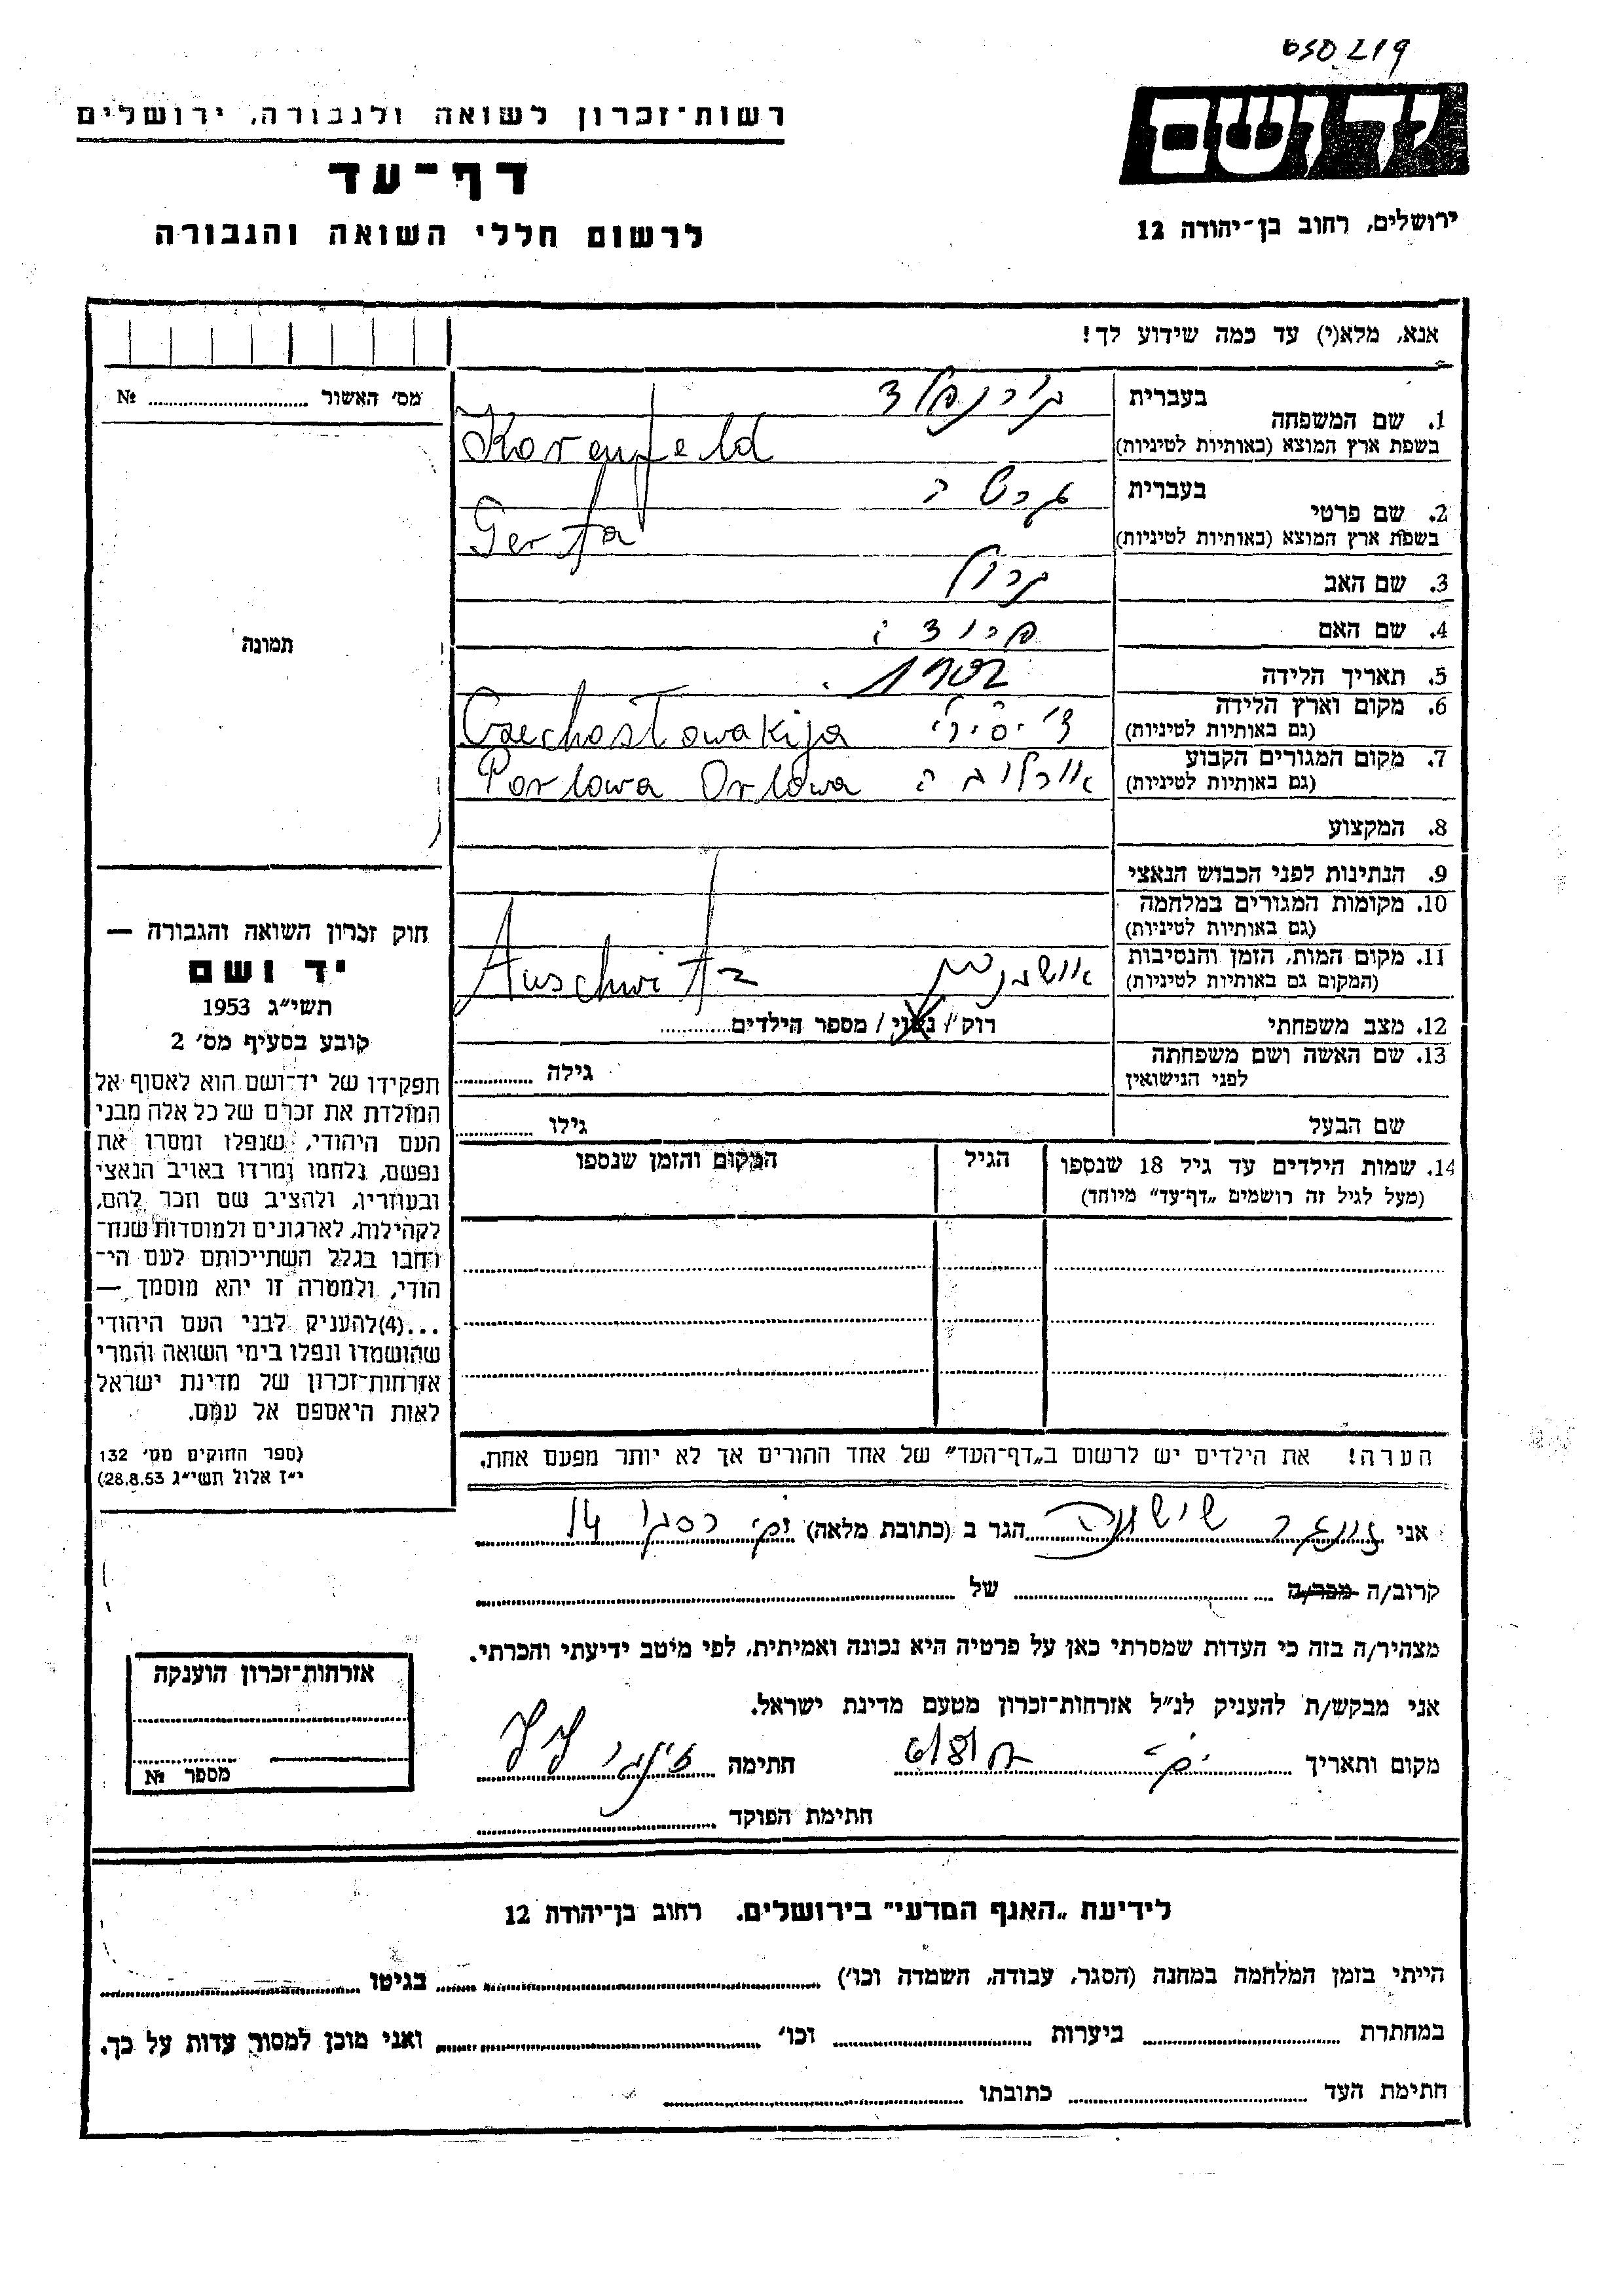 650219
יד ושם
ירושלים, רחוב בן־יהודה 12
רשות־זכרון לשואה ולגבורה, ירושלים
דף־עד
לרשום חללי השואה והגבורה
אנא, מלא(י) עד כמה שידוע לך!
מס׳ האשור ........ №
תמונה
1. שם המשפחה
בעברית
קורנפלד
בשפת ארץ המוצא (באותיות לטיניות)
Korenfeld
2. שם פרטי
בעברית
גרטה
בשפת ארץ המוצא (באותיות לטיניות)
Gerta
3. שם האב
קרול
4. שם האם
פרידה
5. תאריך הלידה
1902
6. מקום וארץ הלידה
(גם באותיות לטיניות)
Czechosłowakija
7. מקום המגורים הקבוע
(גם באותיות לטיניות)
אורלובה Porlowa Orlowa
8. המקצוע
9. הנתינות לפני הכבוש הנאצי
10. מקומות המגורים במלחמה
(גם באותיות לטיניות)
11. מקום המות, הזמן והנסיבות
(המקום גם באותיות לטיניות)
אושוויץ Auschwitz
12. מצב משפחתי
רווק / נשוי / מספר הילדים........
13. שם האשה ושם משפחתה
לפני הנישואין
גילה ........
שם הבעל
גילו ........
14. שמות הילדים עד גיל 18 שנספו
(מעל לגיל זה רושמים „דף־עד” מיוחד)
הגיל
המקום והזמן שנספו
הערה! את הילדים יש לרשום ב„דף־העד” של אחד ההורים אך לא יותר מפעם אחת.
חוק זכרון השואה והגבורה —
יד ושם
תשי״ג 1953
קובע בסעיף מס׳ 2
תפקידו של יד־ושם הוא לאסוף אל
המולדת את זכרם של כל אלה מבני
העם היהודי, שנפלו ומסרו את
נפשם, נלחמו ומרדו באויב הנאצי
ובעוזריו, ולהציב שם וזכר להם,
לקהילות, לארגונים ולמוסדות שנח־
רבו בגלל השתייכותם לעם הי־
הודי, ולמטרה זו יהא מוסמך —
...(4)להעניק לבני העם היהודי
שהושמדו ונפלו בימי השואה והמרי
אזרחות־זכרון של מדינת ישראל
לאות היאספם אל עמם.
(ספר החוקים מס׳ 132
י״ז אלול תשי״ג 28.8.53)
אני ........ הגר ב (כתובת מלאה) ........ 14
קרוב/ה מכר/ה ........ של ........
מצהיר/ה בזה כי העדות שמסרתי כאן על פרטיה היא נכונה ואמיתית, לפי מיטב ידיעתי והכרתי.
אני מבקש/ת להעניק לנ״ל אזרחות־זכרון מטעם מדינת ישראל.
מקום ותאריך ........ חתימה ........
חתימת הפוקד ........
אזרחות־זכרון הוענקה
מספר №
לידיעת „האגף המדעי” בירושלים. רחוב בן־יהודה 12
הייתי בזמן המלחמה במחנה (הסגר, עבודה, השמדה וכו׳) ........ בגיטו ........
במחתרת ........ ביערות ........ וכו׳ ........ ואני מוכן למסור עדות על כך.
חתימת העד ........ כתובתו ........